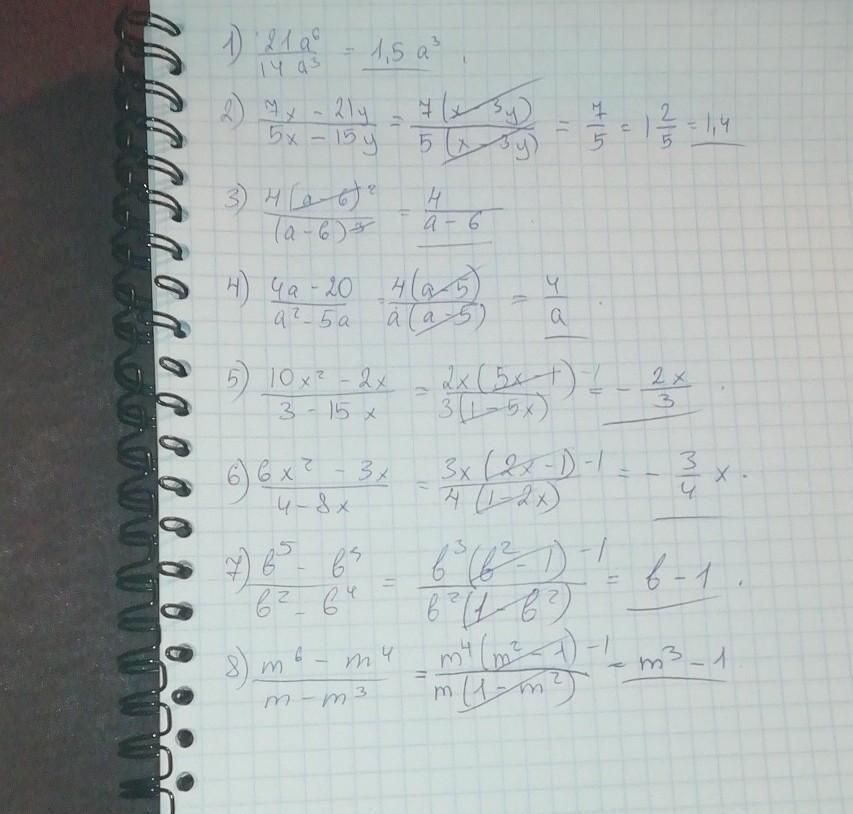 1) 21a⁶/14a³ = 1,5 a³.
2) 7x - 21y/5x - 15y = 7(x - 3y)/5(x - 3y) = 7/5 = 1 2/5 = 1,4
3) 4(a-6)²/(a-6)³ = 4/a-6.
4) 4a-20/a²-5a = 4(a-5)/a(a-5) = 4/a.
5) 10x² - 2x/3 - 15x = 2x(5x-1)⁻¹/3(1-5x) = - 2x/3.
6) 6x² - 3x/4-8x = 3x(2x-1)⁻¹/4(1-2x) = - 3/4 x.
7) b⁵ - b³/b² - b⁴ = b³(b²-1)⁻¹/b²(1-b²) = b-1.
8) m⁶ - m⁴/m - m³ = m⁴(m²-1)⁻¹/m(1-m²) = m³-1